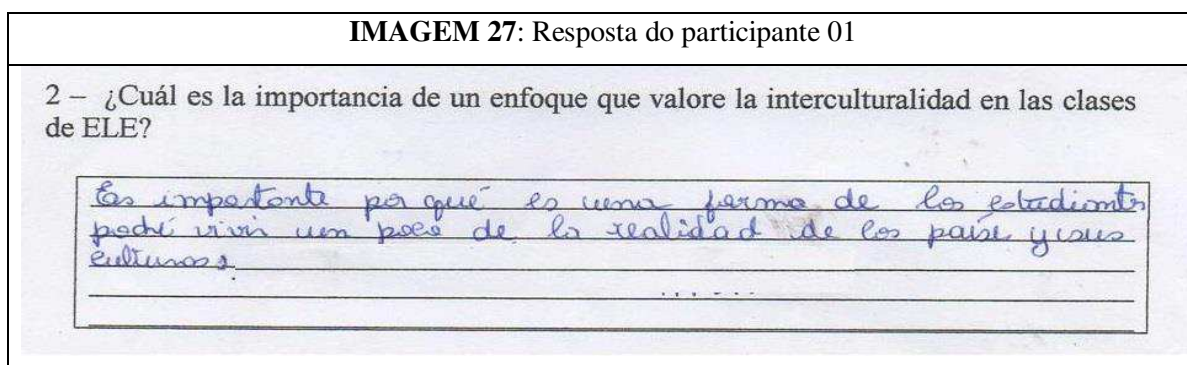 IMAGEM 27: Resposta do participante 01
2 – ¿Cuál es la importancia de un enfoque que valore la interculturalidad en las clases
de ELE?
Es importante por qué es uma forma de los estudiantes
podré vivir um poco de la realidad de los paíse y sus
culturas.